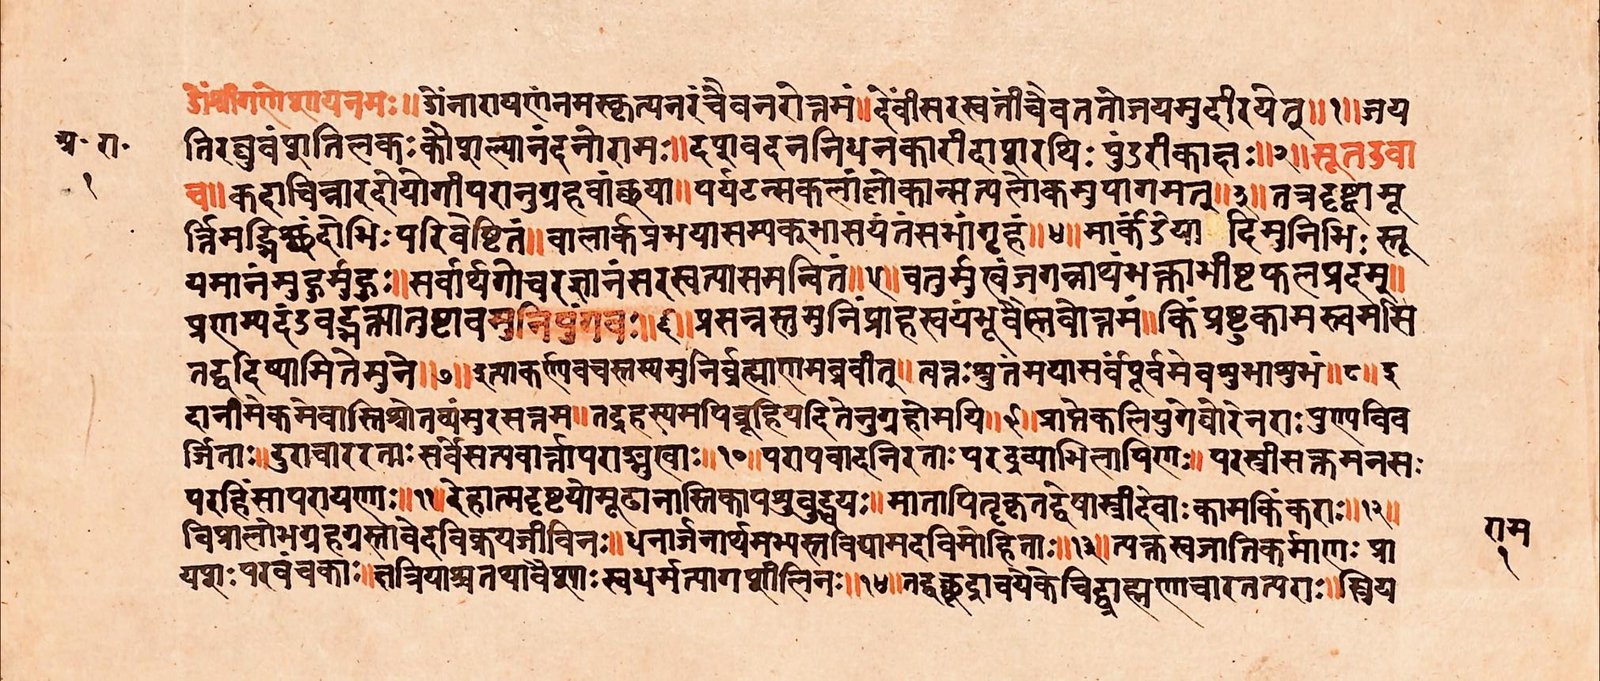 ॐश्रीगणेशायनमः॥ॐनारायणंनमस्कृत्यनरंचैवनरोत्तमं॥देवींसरस्वतींचैवततोजयमुदीरयेत्॥१॥जय
अ॰ रा॰
१
तिरघुवंशतिलकःकौशल्यानंदनोरामः॥दशवदननिधनकारीदाशरथिःपुंडरीकाक्षः॥२॥सूतउवा
च॥कदाचिन्नारदोयोगीपरानुग्रहवांछया॥पर्यटन्सकलांलोकान्सत्यलोकमुपागमत्॥३॥तत्रदृष्ट्वामू
र्त्तिमद्भिश्छंदोभिःपरिवेष्टितं॥बालार्कप्रभयासम्यक्भासयंतंसभांगृहं॥४॥मार्कंडेया दिमुनिभिःस्तू
यमानंमुहुर्मुहुः॥सर्वार्थगोचरज्ञानंसरस्वत्यासमन्वितं॥५॥चतुर्मुखंजगन्नाथंभक्ताभीष्टफलप्रदम्॥
प्रणम्यदंडवद्भक्त्यातुष्टावमुनिपुंगवः॥६॥प्रसन्नस्तमुनिंप्राहस्वयंभूर्वैष्णवोत्तमं॥किंप्रष्टुकामस्त्वमसि
तद्वदिष्यामितेमुने॥७॥इत्याकर्ण्यवचस्तस्यमुनिर्ब्रह्माणमब्रवीत्॥त्वत्तःश्रुतंमयासर्वंपूर्वमेवशुभाशुभं॥८॥इ
दानीमेकमेवास्तिश्रोतव्यंसुरसत्तम॥तद्रहस्यमपिब्रूहियदितेनुग्रहोमयि॥९॥प्राप्तेकलियुगेघोरेनराःपुण्यविव
र्जिताः॥दुराचाररताःसर्वेसत्यवार्त्तापराङ्मुखाः॥१०॥परापवादनिरताःपरद्रव्याभिलाषिणः॥परस्त्रीसक्तमनसः
परहिंसापरायणाः॥११॥देहात्मदृष्टयोमूढानास्तिकापशुबुद्धयः॥मातापितृकृतद्वेषास्त्रीदेवाःकामकिंकराः॥१२॥
विप्रालोभग्रहग्रस्तावेदविक्रयजीविनः॥धनार्जनार्थमभ्यस्तविद्यामदविमोहिताः॥१३॥त्यक्तस्वजातिकर्माणःप्रा
राम
१
यशःपरवंचकाः॥क्षत्रियाश्चतथावैश्याःस्वधर्मत्यागशीलिनः॥१४॥तद्वच्छूद्राश्चयेकेचिद्ब्राह्मणाचारतत्पराः॥स्त्रिय